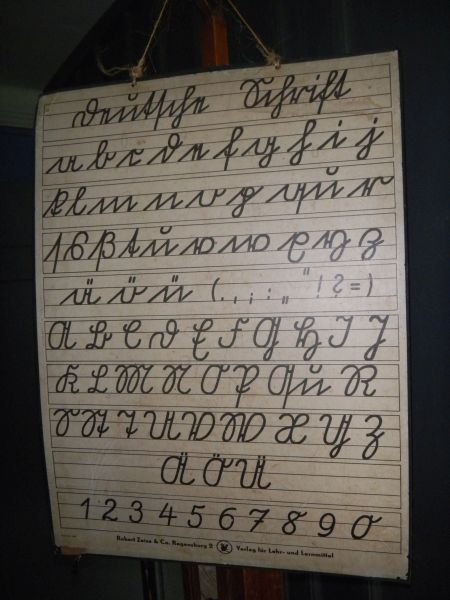 Deutsche Schrift
a b c d e f g h i j
k l m n o p qu r
ſ s ß t u v w x y z
ä ö ü ( . , ; : „ “ ! ? = )
A B C D E F G H I J
K L M N O P Qu R
S St T U V W X Y Z
Ä Ö Ü
1 2 3 4 5 6 7 8 9 0
Robert Zeise & Co. Regensburg 2 Verlag für Lehr- und Lernmittel